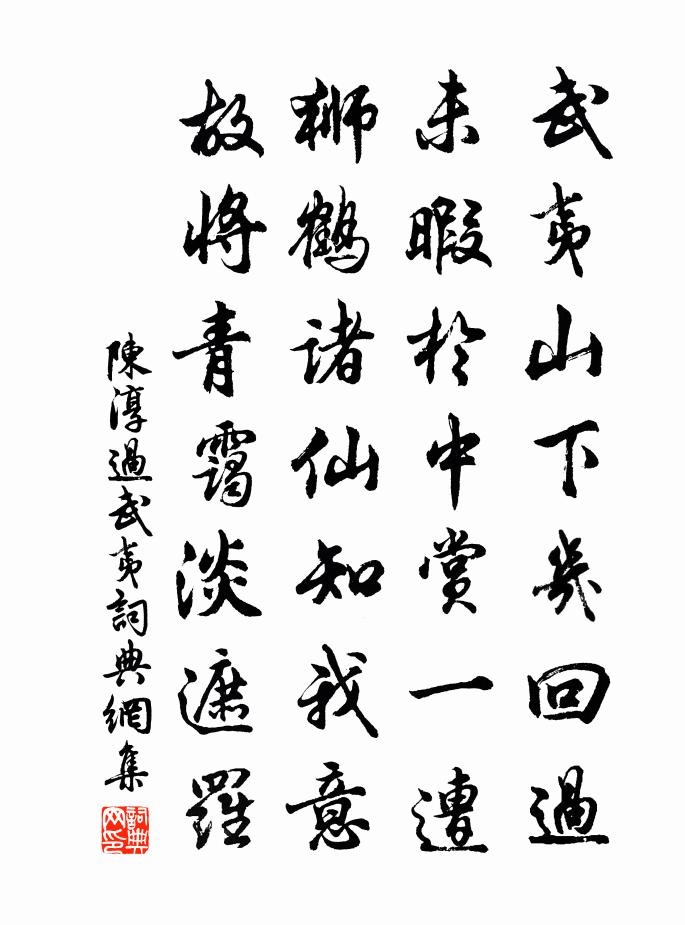 武夷山下幾回過
未暇於中賞一遭
獅鶴諸仙知我意
故將青靄淡遮羅
陳淳過武夷詞典網集
詞典网印